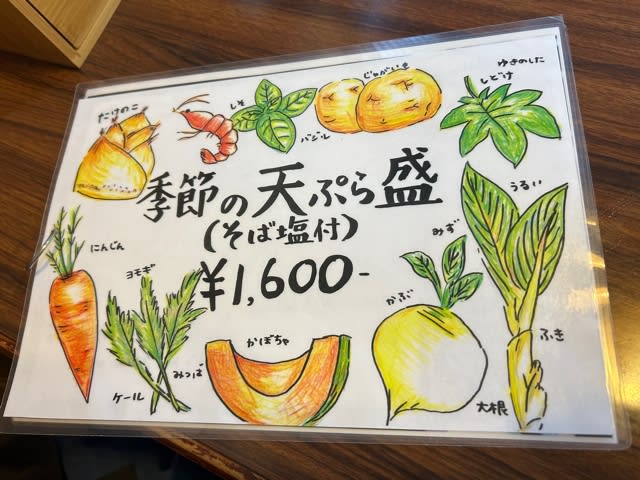 たけのこ
しそ
バジル
じゃがいも
ゆきのした
しどけ
季節の天ぷら盛
(そば塩付)
¥1,600-
にんじん
ヨモギ
ケール
みつば
かぼちゃ
かぶ
みず
うるい
ふき
大根